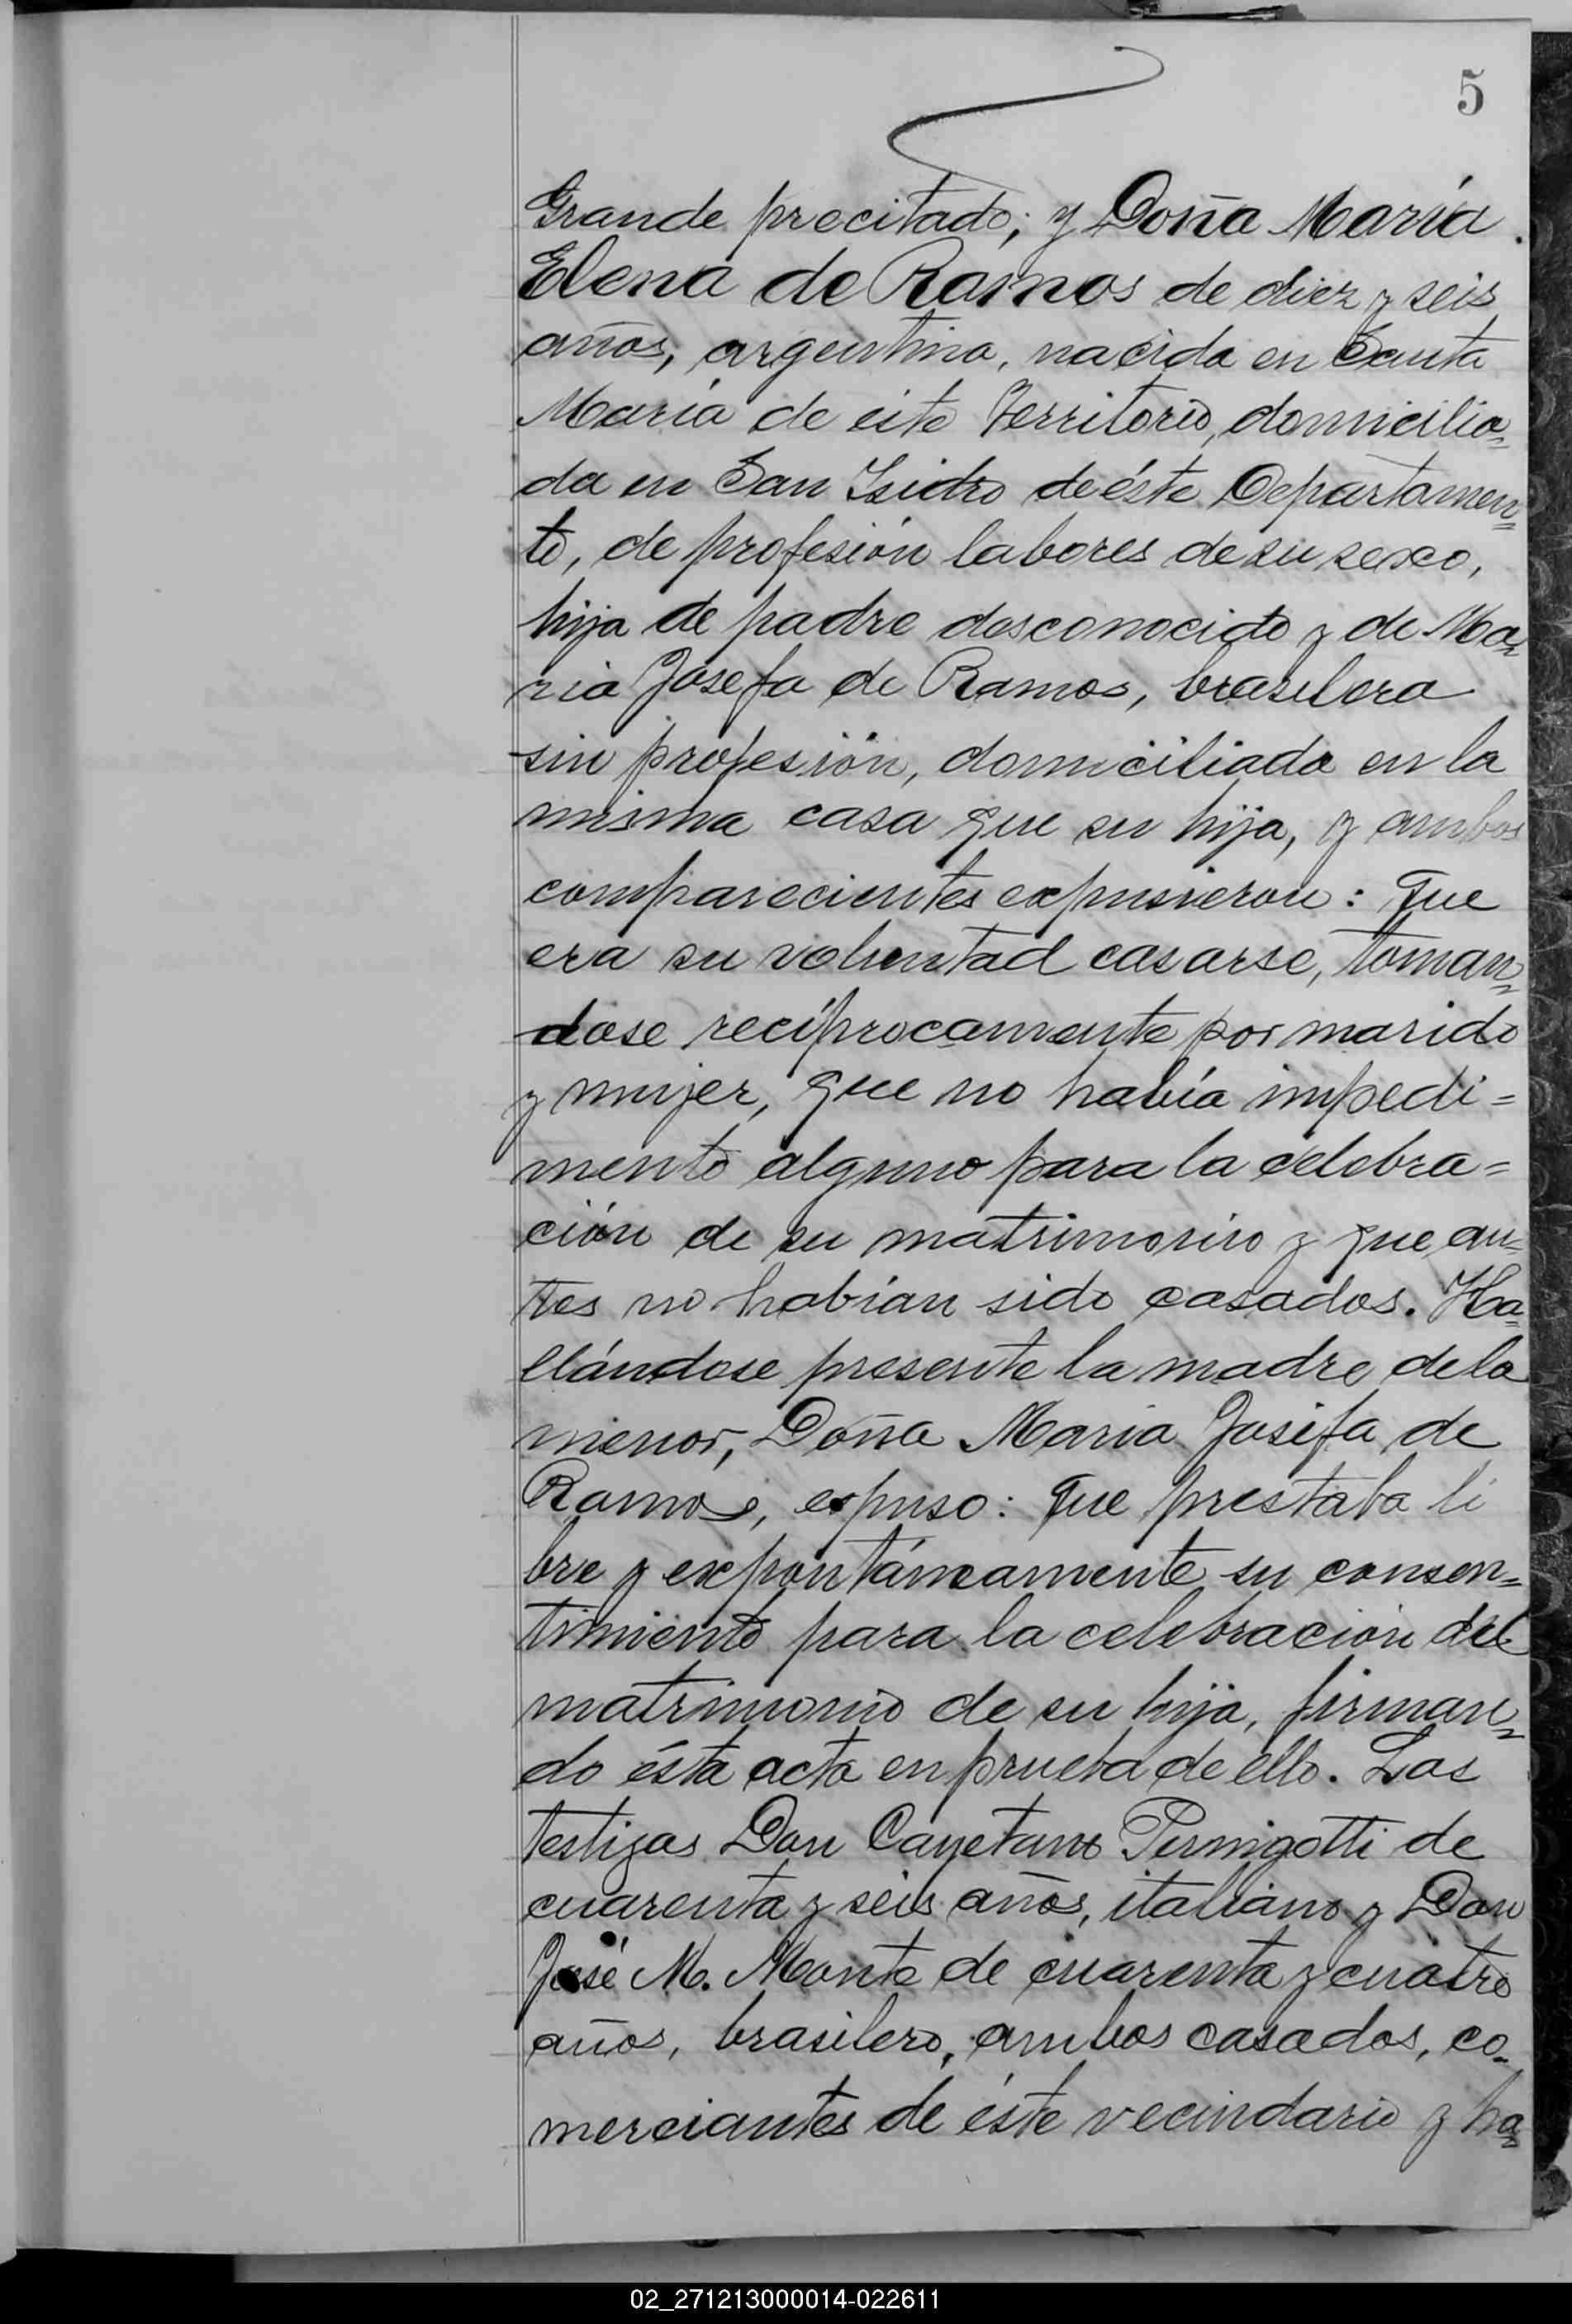 5
Grande precitado; y Doña María
Elena de Ramos de diez y seis
años, argentina, nacida en Santa
María de este Territorio, domicilia-
da en San Isidro de éste Departamen-
to, de profesión labores de su sexo,
hija de padre desconocido y de Ma-
ria Josefa de Ramos, brasilera
sin profesión, domiciliada en la
misma casa que su hija, y ambos
comparecientes expusieron: Que
era su voluntad casarse, toman-
dose recíprocamente por marido
y mujer, que no había impedi=
mento alguno para la celebra=
ción de su matrimonio y que an=
tes no habían sido casados. Ha=
llándose presente la madre de la
menor, Doña Maria Josefa de
Ramos, expuso: Que prestaba li
bre y expontáneamente su consen=
timiento para la celebración del
matrimonio de su hija, firman=
do ésta acta en prueba de ello. Los
testigos Don Cayetano Pernigotti de
cuarenta y seis años, italiano y Don
José M. Monte de cuarenta y cuatro
años, brasilero, ambos casados, co-
merciantes de éste vecindario y ha=
02_271213000014-022611